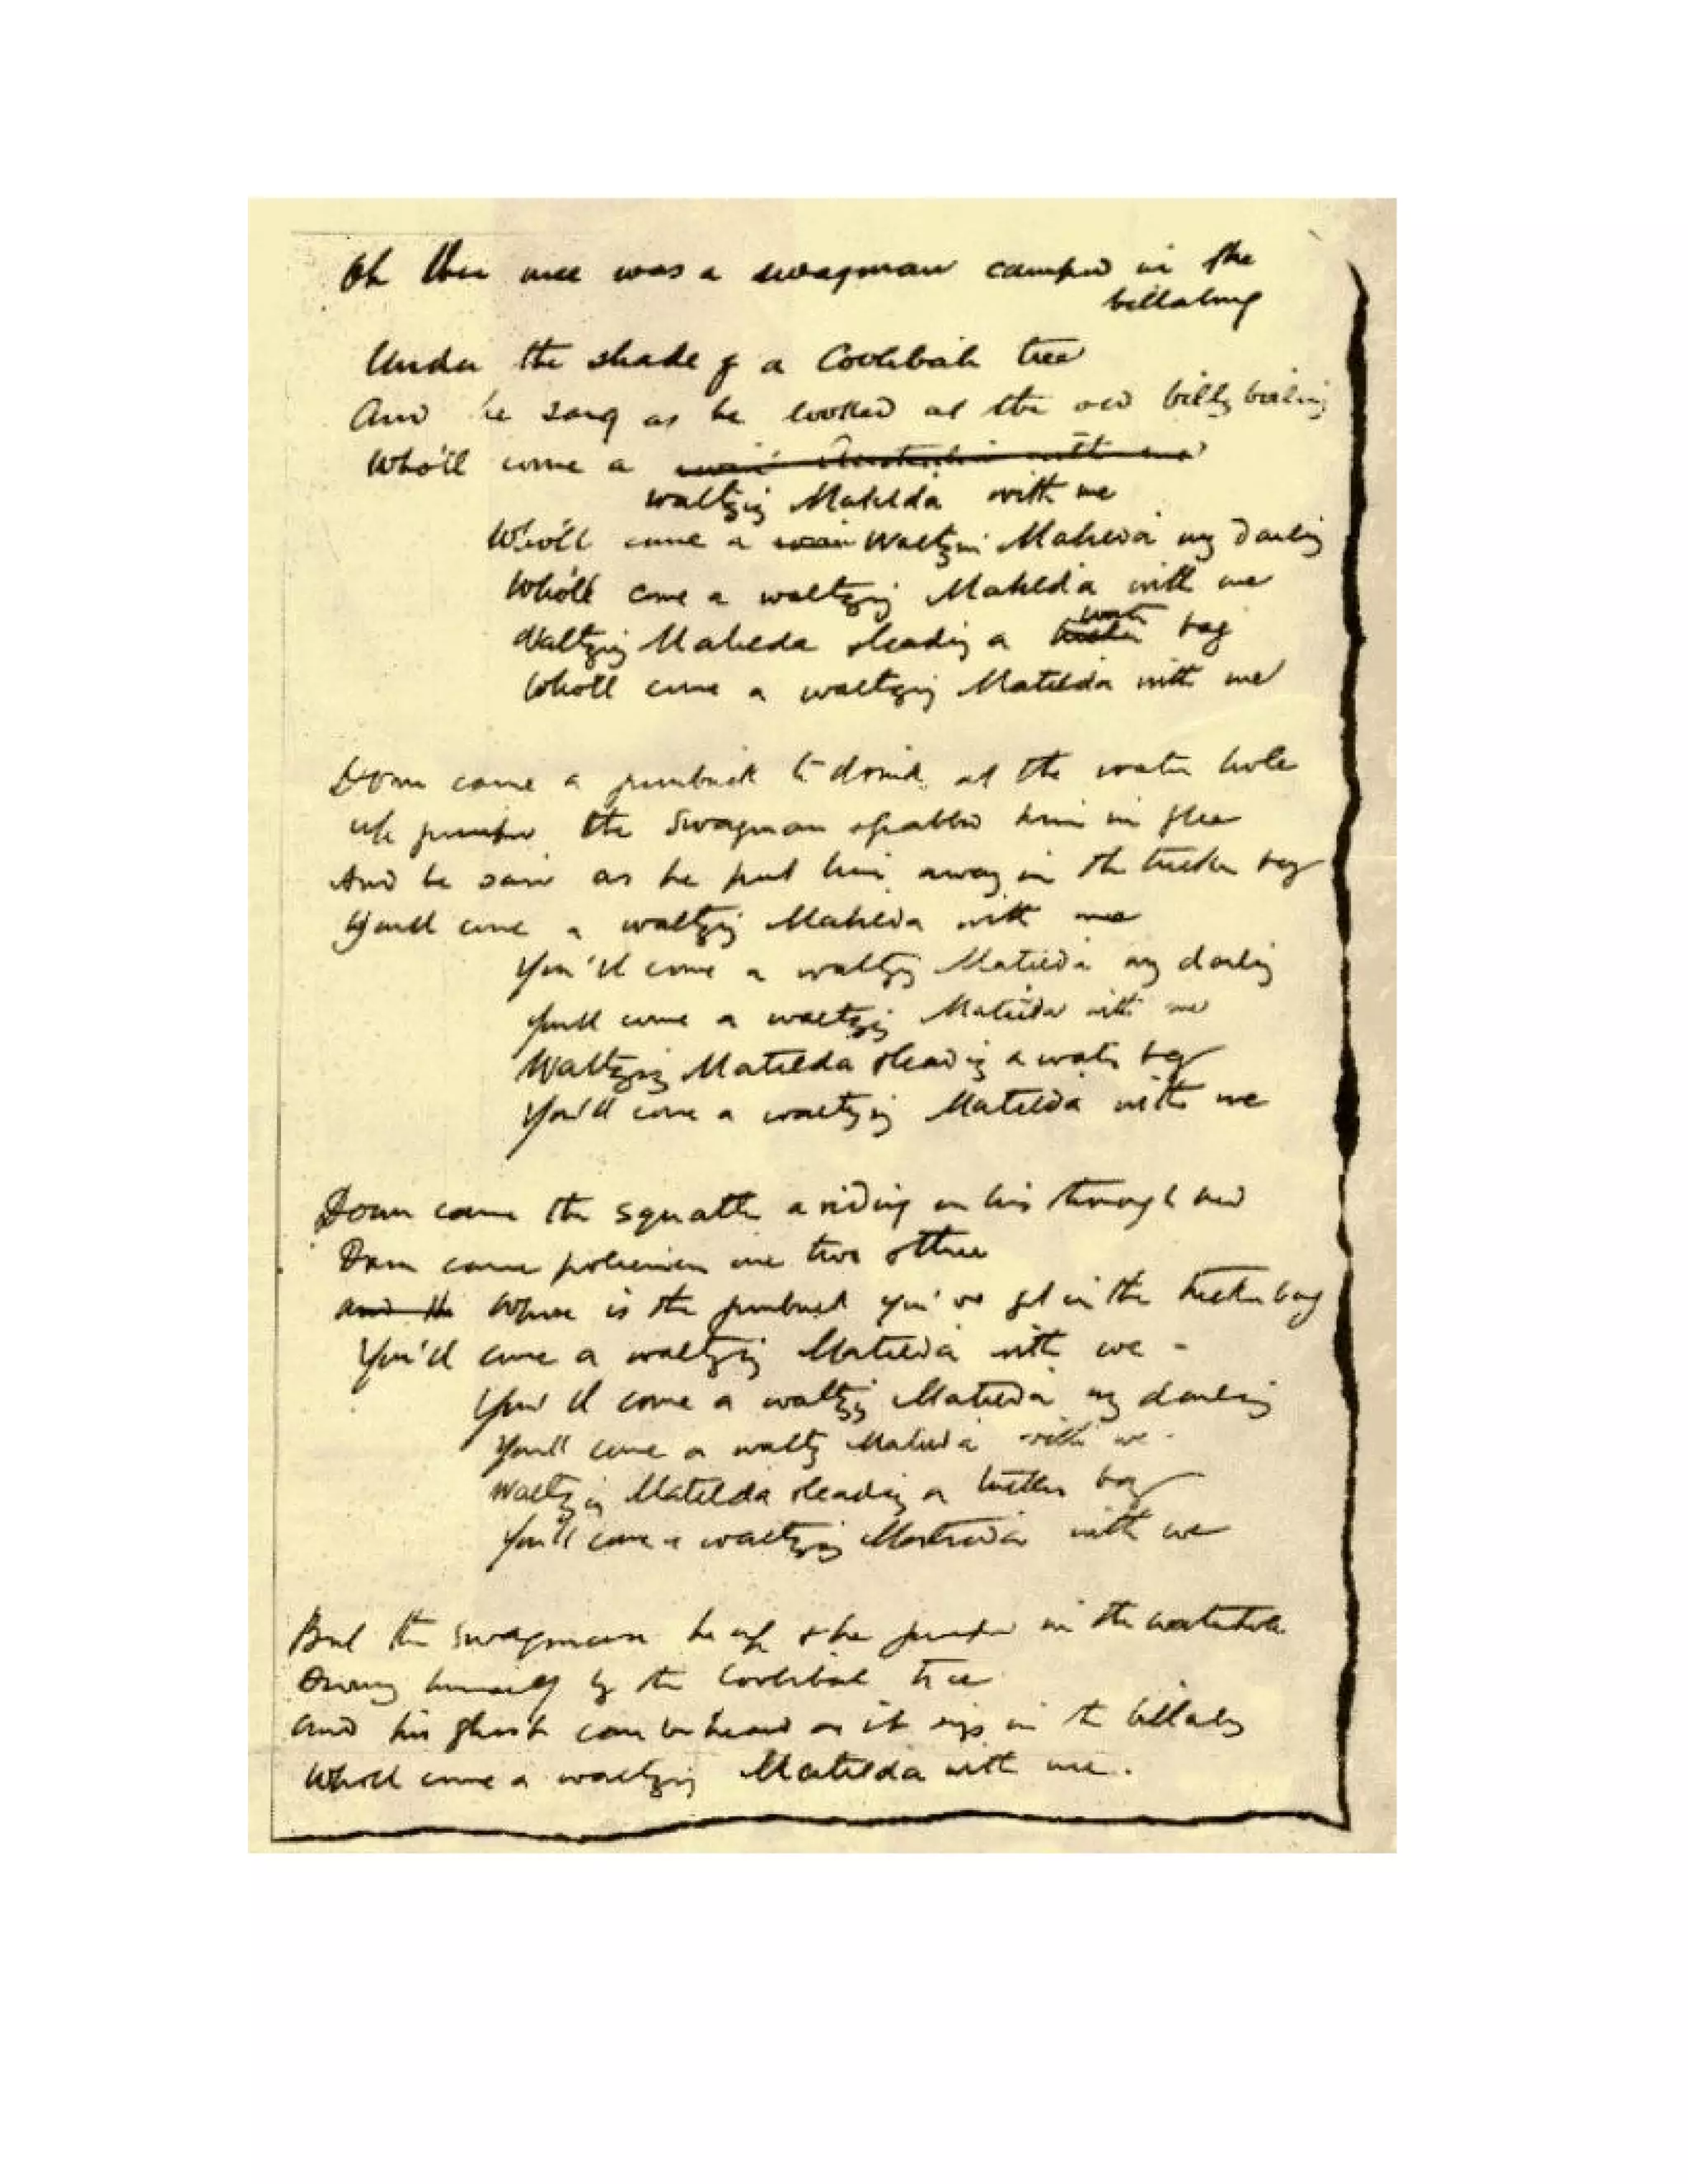 Oh there once was a swagman camped in the
billabong
Under the shade of a Coolibah tree
And he sang as he looked at the old billy boiling
Who'll come a roving Australia with me
waltzing Matilda with me
Who'll come a waltzing Matilda my darling
Who'll come a waltzing Matilda with me
Waltzing Matilda leading a tucker water bag
Who'll come a waltzing Matilda with me
Down came a jumbuck to drink at the water hole
Up jumped the swagman grabbed him in glee
And he said as he put him away in the tucker bag
You'll come a waltzing Matilda with me
You'll come a waltzing Matilda my darling
You'll come a waltzing Matilda with me
Waltzing Matilda leading a water bag
You'll come a waltzing Matilda with me
Down came the squatter a riding on his thoroughbred
Down came policemen one two three
and the Where is the jumbuck you've got in the tucker bag
You'll come a waltzing Matilda with we -
You'll come a waltzing Matilda my darling
You'll come a waltzing Matilda with we -
Waltzing Matilda leading a tucker bag
You'll come a waltzing Matilda with we
But the swagman he up & he jumped in the waterhole
Drowning himself by the Coolibah tree
And his ghost can be heard as it sings in the billabong
Who'll come a waltzing Matilda with me.